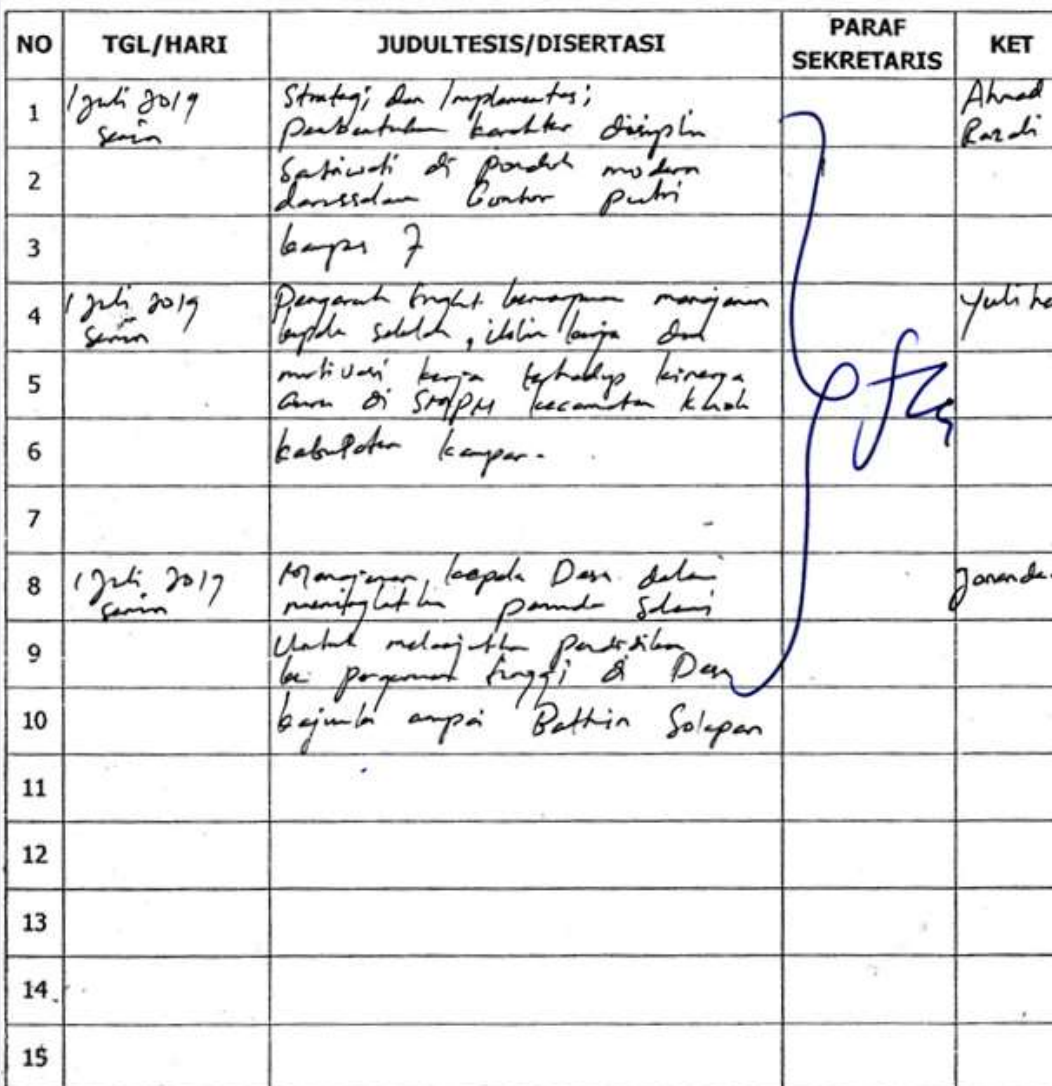 NO TGL/HARI JUDULTESIS/DISERTASI PARAF SEKRETARIS KET
1 1 Juli 2019 Strategi dan Implementasi Ahmad
senin Pembentukan karakter disiplin Razali
2 Santriwati di Pondok modern
darussalam Gontor Putri
3 kampus 7
4 1 Juli 2019 Pengaruh tingkat manajemen
senin kepala sekolah, iklim kerja dan
5 motivasi kerja terhadap kinerja
Guru di kecamatan
6 kabupaten kampar.
7
8 1 Juli 2019 Manajemen kepala Desa dalam
senin pemuda
9 Untuk melanjutkan pendidikan
ke perguruan tinggi di Desa
10 Batthin Solapan
11
12
13
14
15